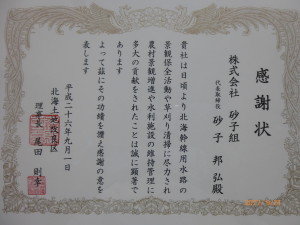 感謝状
株式会社 砂子組
代表取締役 砂子 邦弘殿
貴社は日頃より北海幹線用水路の
景観保全活動や草刈り清掃に尽力され
農村景観増進や水利施設の維持管理に
多大の貢献をされたことは誠に顕著で
あります
よって茲にその功績を讃え感謝の意を
表します
平成二十六年九月一日
北海土地改良区
理事長 尾田 則幸